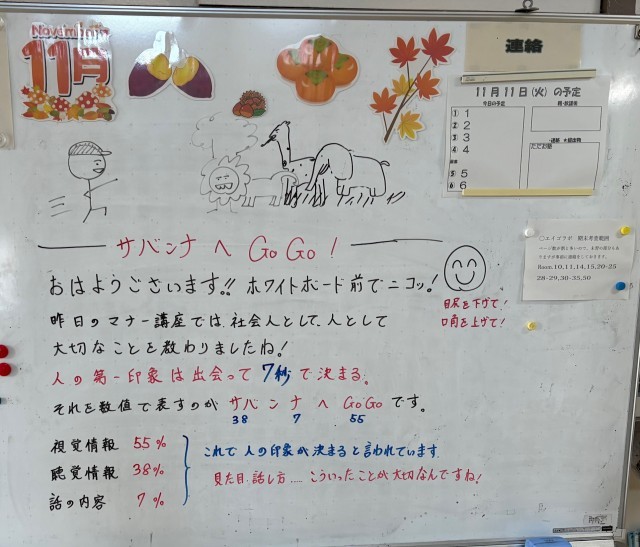 November
11月
連絡
11月11日(火)の予定
今日の予定
① 1
② 2
③ 3
④ 4
⑤ 5
⑥ 6
サバンナへ GoGo!
おはようございます!! ホワイトボード前でニコッ!
目尻を下げて!
口角を上げて!
昨日のマナー講座では、社会人として、人として
大切なことを教わりましたね!
人の第一印象は出会って7秒で決まる。
それを数値で表すのが サバンナへ GoGo です。
38 7 55
視覚情報 55%
聴覚情報 38%
話の内容 7%
これで人の印象が決まると言われています。
見た目、話し方…… こういったことが大切なんですね!
Room.10,11,14,15,20-25
28-29,30-35,50